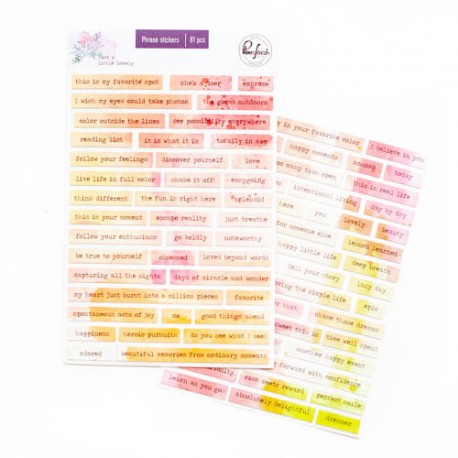 Phrase stickers 61 pcs
Pinkfresh
just a
little lovely
this is my favorite spot
embrace
I wish my eyes could take photos the great outdoors
color outside the lines see possibility everywhere
reading list it is what it is totally in awe
follow your feelings discover yourself love
live life in full color shake it off easygoing
think different the fun is right here splendid
this is your moment escape reality just breathe
follow your enthusiasm go boldly noteworthy
be true to yourself obsessed loved beyond words
capturing all the sights days of miracle and wonder
my heart just burst into a million pieces favorite
spontaneous acts of joy me good things ahead
happiness heroic pursuits do you see what I see
adored beautiful memories from ordinary moments
is your favorite color I believe in you
happy moments today
many take open this is real life
intentional living day by day
here you lovely beauty
for someone else lesson learned
happy little life deep breath
tell your story lazy day
the simple life epic
that chase those dreams
time well spent
another happy event
forward with confidence
kindly risk meets reward perfect smile
learn as you go absolutely delightful dreamer